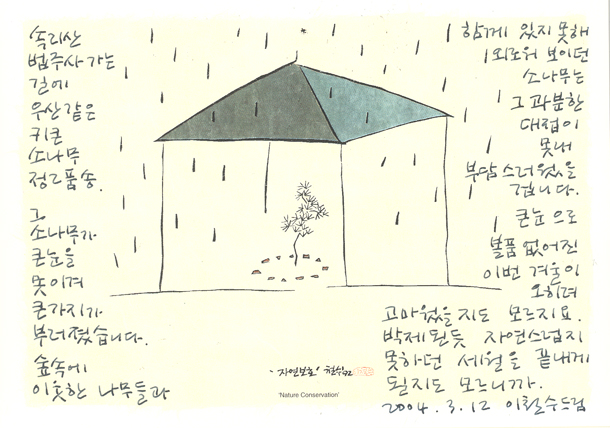 속리산
법주사 가는
길에
우산 같은
키큰
소나무
정2품송.
그
소나무가
큰눈을
못이겨
큰가지가
부러졌습니다.
숲속에
이웃한 나무들과
함께 있지 못해
외로워 보이던
소나무는
그 과분한
대접이
못내
부담스러웠을
겁니다.
큰눈으로
볼품 없어진
이번 겨울이
오히려
고마웠을지도 모르지요.
박제된듯 자연스럽지
못하던 세월을 끝내게
될지도 모르니까.
2004. 3. 12 이철수드림
'자연보호' 철수 92
'Nature Conservation'